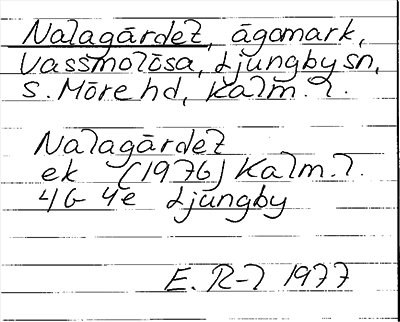 Nalagärdet, ägomark,
Vassmolösa, Ljungby sn,
S. Möre hd, Kalm. l.
Nalagärdet
ek (1976) Kalm. l.
4G 4e Ljungby
E. R-l 1977